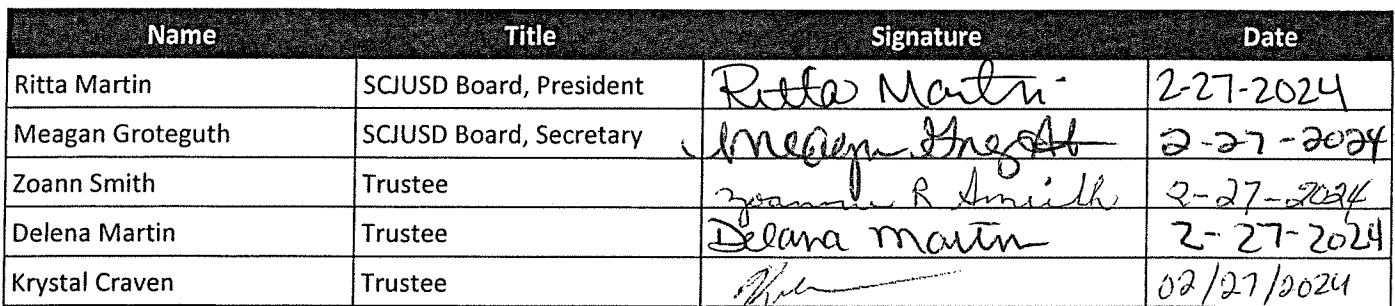 Name Title Signature Date
Ritta Martin SCJUSD Board, President Ritta Martin 2-27-2024
Meagan Groteguth SCJUSD Board, Secretary Meagan 2-27-2024
Zoann Smith Trustee Zoann R Smith 2-27-2024
Delena Martin Trustee Delana Martin 2-27-2024
Krystal Craven Trustee 02/27/2024